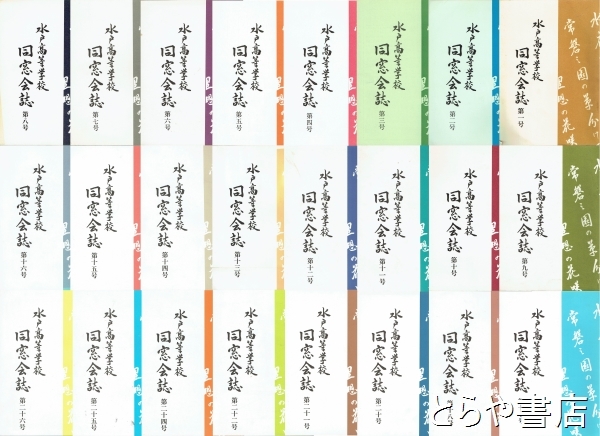 水戸高等学校
同窓会誌
第一号
水戸高等学校
同窓会誌
第二号
水戸高等学校
同窓会誌
第三号
水戸高等学校
同窓会誌
第四号
水戸高等学校
同窓会誌
第五号
水戸高等学校
同窓会誌
第六号
水戸高等学校
同窓会誌
第七号
水戸高等学校
同窓会誌
第八号
水戸高等学校
同窓会誌
第九号
水戸高等学校
同窓会誌
第十号
水戸高等学校
同窓会誌
第十一号
水戸高等学校
同窓会誌
第十二号
水戸高等学校
同窓会誌
第十三号
水戸高等学校
同窓会誌
第十四号
水戸高等学校
同窓会誌
第十五号
水戸高等学校
同窓会誌
第十六号
水戸高等学校
同窓会誌
水戸高等学校
同窓会誌
水戸高等学校
同窓会誌
第二十号
水戸高等学校
同窓会誌
第二十一号
水戸高等学校
同窓会誌
水戸高等学校
同窓会誌
第二十四号
水戸高等学校
同窓会誌
第二十五号
水戸高等学校
同窓会誌
第二十六号
とらや書店